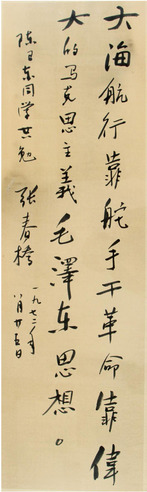 大海航行靠舵手干革命靠偉
大的马克思主義毛澤东思想。
陈卫东同学共勉
张春桥
一九七二年
八月廿五日